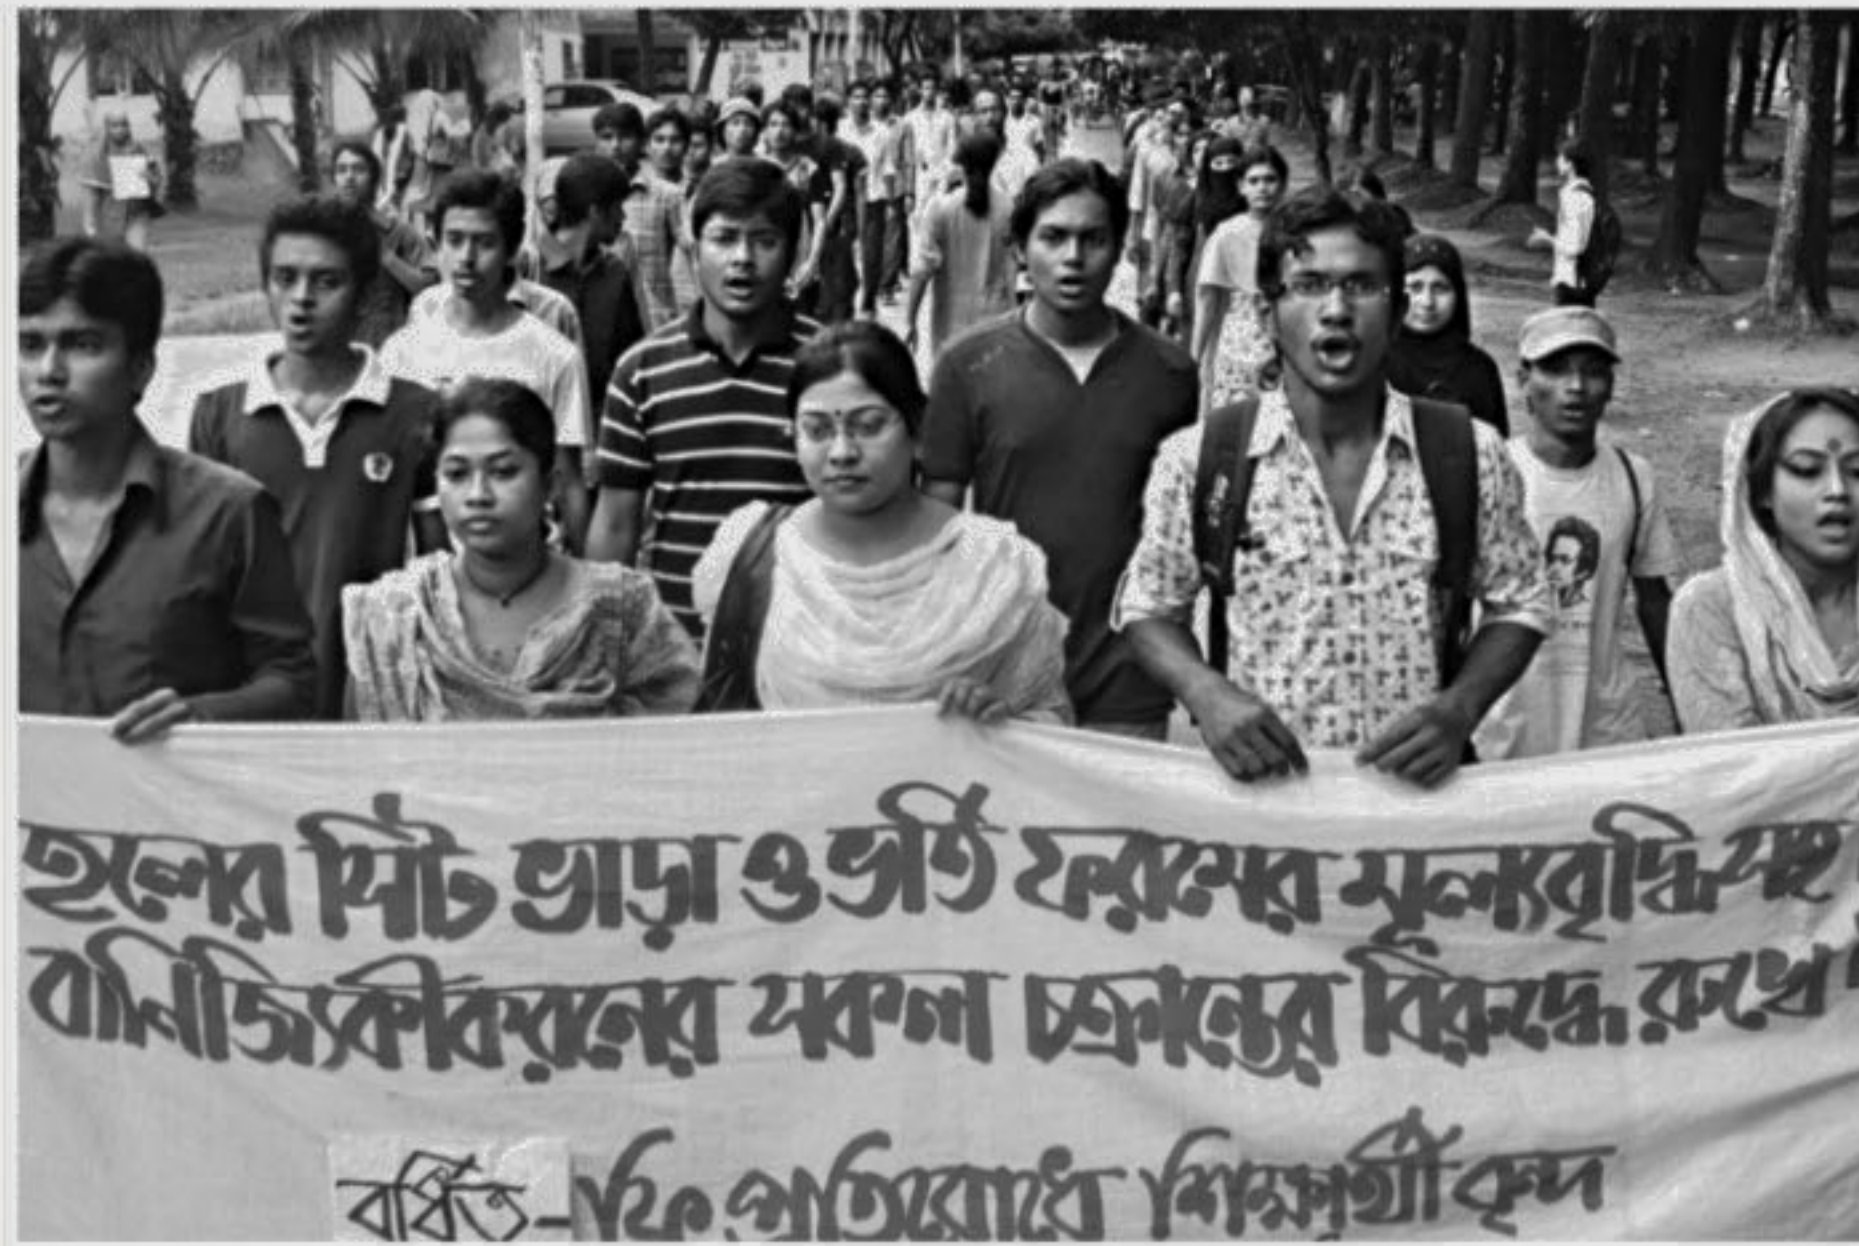 হলের সিট ভাড়া ও ভর্তি ফরমের মূল্যবৃদ্ধি সহ
বানিজ্যিকীকরনের সকল চক্রান্তের বিরুদ্ধে রুখে
বর্ধিত-ফি প্রতিরোধে শিক্ষার্থী বৃন্দ